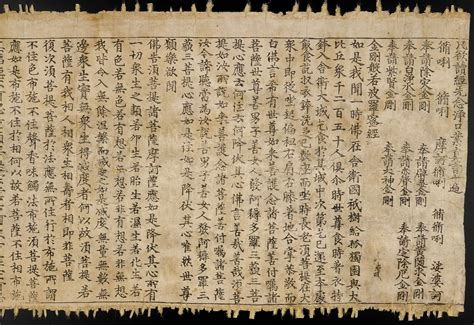 凡欲讀經先念淨口業真言一遍
脩唎 脩唎 摩訶脩唎 脩脩唎 娑婆訶
奉請除災金剛 奉請辟毒金剛 奉請黃隨求金剛
奉請白淨水金剛 奉請赤聲金剛 奉請定除厄金剛
奉請紫賢金剛 奉請大神金剛
金剛般若波羅蜜經
如是我聞一時佛在舍衛國祇樹給孤獨園與大
比丘衆千二百五十人俱尒時世尊食時著衣持
鉢入舍衛大城乞食於其城中次第乞已還至本處
飯食訖收衣鉢洗足已敷座而坐時長老須菩提在大
衆中即從座起偏袒右肩右膝著地合掌恭敬而
白佛言希有世尊如來善護念諸菩薩善付囑諸
菩薩世尊善男子善女人發阿耨多羅三藐三菩
提心應云何住云何降伏其心佛言善哉善哉須菩
提如汝所說如來善護念諸菩薩善付囑諸菩薩
汝今諦聽當為汝說善男子善女人發阿耨多羅三
藐三菩提心應如是住如是降伏其心唯然世尊
願樂欲聞
佛告須菩提諸菩薩摩訶薩應如是降伏其心所有
一切衆生之類若卵生若胎生若濕生若化生若
有色若無色若有想若無想若非有想非無想
我皆令入無餘涅槃而滅度之如是滅度無量無數無
邊衆生實無衆生得滅度者何以故須菩提若
菩薩有我相人相衆生相壽者相即非菩薩
復次須菩提菩薩於法應無所住行於布施所謂
不住色布施不住聲香味觸法布施須菩提菩薩
應如是布施不住於相